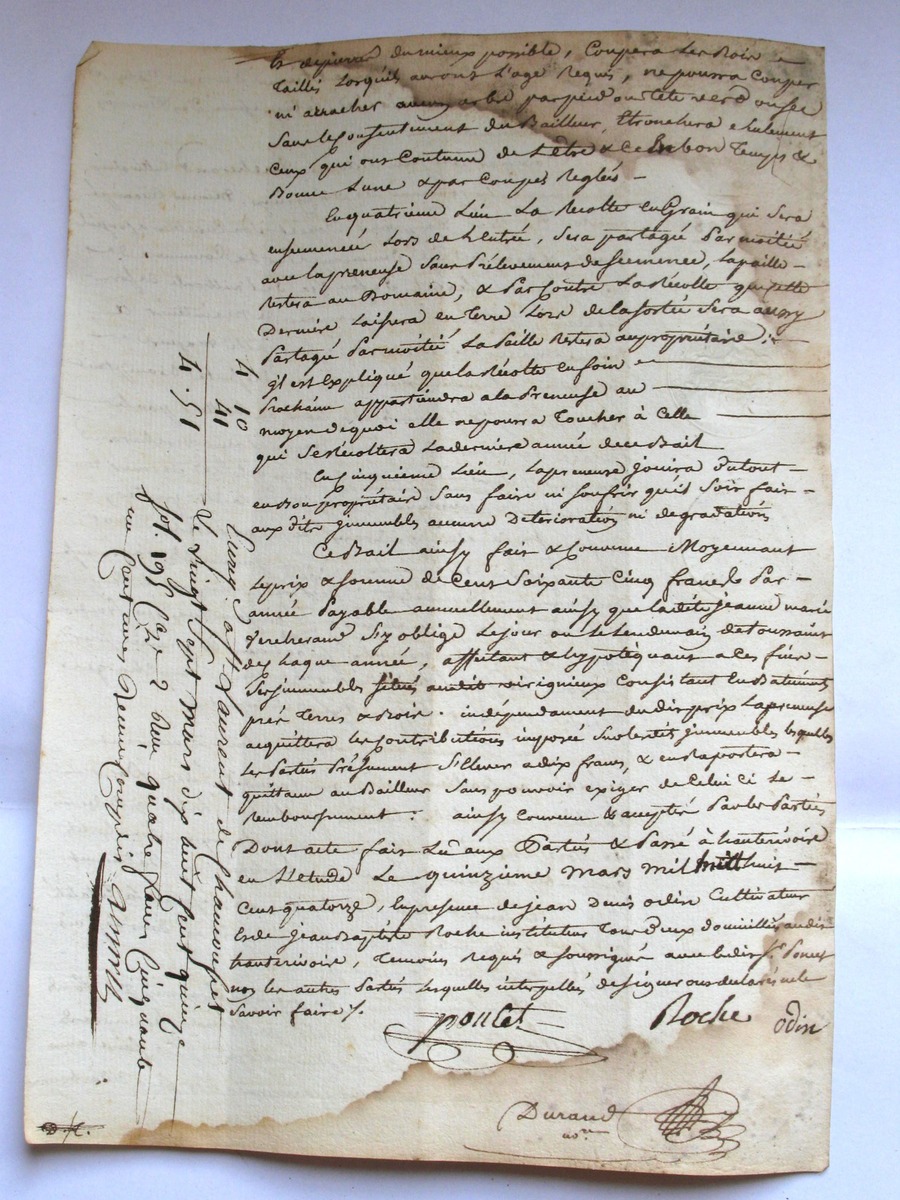 et dépuré du mieux possible, Coupera les Bois
Taillis Lorsquils auront L'age Requis, ne pourra Couper
ni arracher aucuns arbre par pied ou tête verd ou sec
Sans le Consentement du Bailleur, Etronchera seulement
Ceux qui ont Coutume de L'être & Ce En bon Temps &
Bonne Lune & par Coupes Reglés —
En quatrieme Lieu La Recolte en Grain qui Sera
ensemencée Lors de L'Entrée, Sera partagé Par moitié
avec la preneuse Sans Prélevement de Semence, La paille
Restera au Domaine, & Par Contre La Récolte que Cette
Derniere Laissera en Terre Lors de la Sortie Sera aussy
Partagé Par moitié La Paille Restera au propriétaire ;
il est Expliqué que la Récolte en foin
Prochaine appartiendra a la Preneuse au
moyen de quoi elle ne pourra Toucher à Celle
qui Se Récoltera La derniere année de ce Bail
En Cinquieme Lieu, La preneuse jouira du tout
en Bon propriétaire Sans faire ni Soufrir qu'il Soit fait
aux dits immeubles aucune Deterioration ni degradations
Ce Bail ainsy fait & Convenu Moyennant
Le prix & Somme de Cent Soixante Cinq francs Par
année Payable annuellement ainsy que la dite jeanne marie
Vercherand S'y oblige Le jour ou le Lendemain de Toussaint
de Chaque année, affectant & hypotéquant a Ces fins
Ses immeubles Situés audit virignieux Consistant En Batiments
prés Terres & Bois. indépendament du dit prix La preneuse
acquittera les Contributions imposé Sur les dits immeubles les quelles
Les Partis Présument S'Elever a dix francs, & en Raportera
quittance au Bailleur Sans pouvoir exiger de Celui Ci Le
Remboursement : ainsy Convenu & accepté Par les Parties
Dont acte fait Lû aux Partis & Passé à hauterivoire
en L'étude Le quinzieme mars mil huit
Cent quatorze, En presence de jean Denis odin Cultivateur
Et de Jean Baptiste Roche instituteur Tous Deux domiciliés audit
hauterivoire, Temoins Requis & Soussignés avec Ledit Sr. Poncet
non les autres Partis Lesquelles interpellés de Signer ont declaré ne le
Savoir faire /.
poncet Roche odin
Durand
nore
4 10
41
4.51
Enreg. à St. Laurent de Chamousset
le vingt Sept mars dix huit Cent quinze
fol. 195 Case 2 Reçu quatre francs Cinquante
un Centimes dixieme Compris